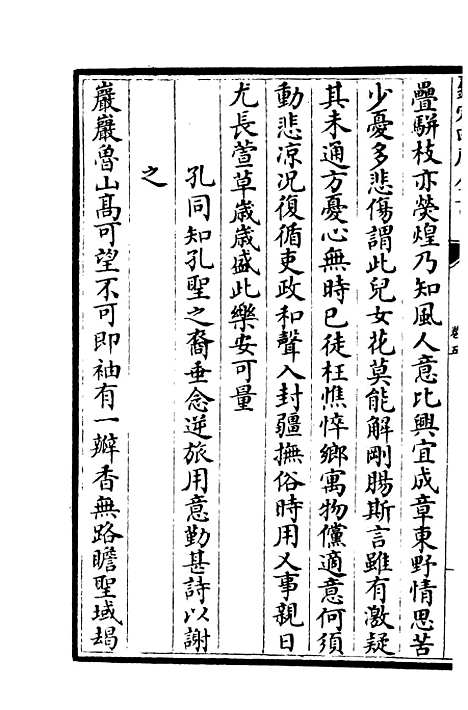 疊駢枝亦熒煌乃知風人意比興宜成章東野情思苦
少憂多悲傷謂此兒女花莫能解剛腸斯言雖有激疑
其未通方憂心無時已徒枉憔悴鄉寓物儻適意何須
動悲凉況復循吏政和聲入封疆撫俗時用乂事親日
尤長萱草歲歲盛此樂安可量
孔同知孔聖之裔垂念逆旅用意勤甚詩以謝
之
巖巖魯山髙可望不可即袖有一瓣香無路瞻聖域朅
卷五